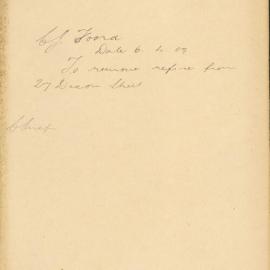 C J Foord
Date 6. 4. 09
To remove refuse from
27 Dixon Street